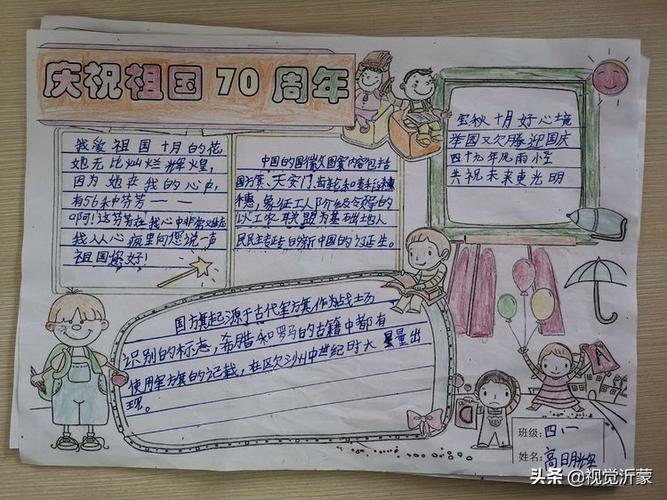 庆祝祖国70周年
我爱祖国十月的花
她无比灿烂辉煌,
因为她在我的心中,
有56种芬芳——
啊!这芬芳在我心中非常
我从心底里向您说一声
祖国您好!
中国的国徽图案内容包括
国旗、天安门、齿轮和麦稻
穗,象征工人阶级
以工农联盟为基础的人
民民主专政的新中国的诞生。
金秋十月好心境
举国欢腾迎国庆
四十九年风雨
共祝未来更光明
国旗起源于古代军旗作为战士
识别的标志,希腊和罗马的古籍中都有
使用军旗的记载,在欧洲中世纪时大量出
现。
班级:四、一
姓名:高日
头条 @视觉沂蒙